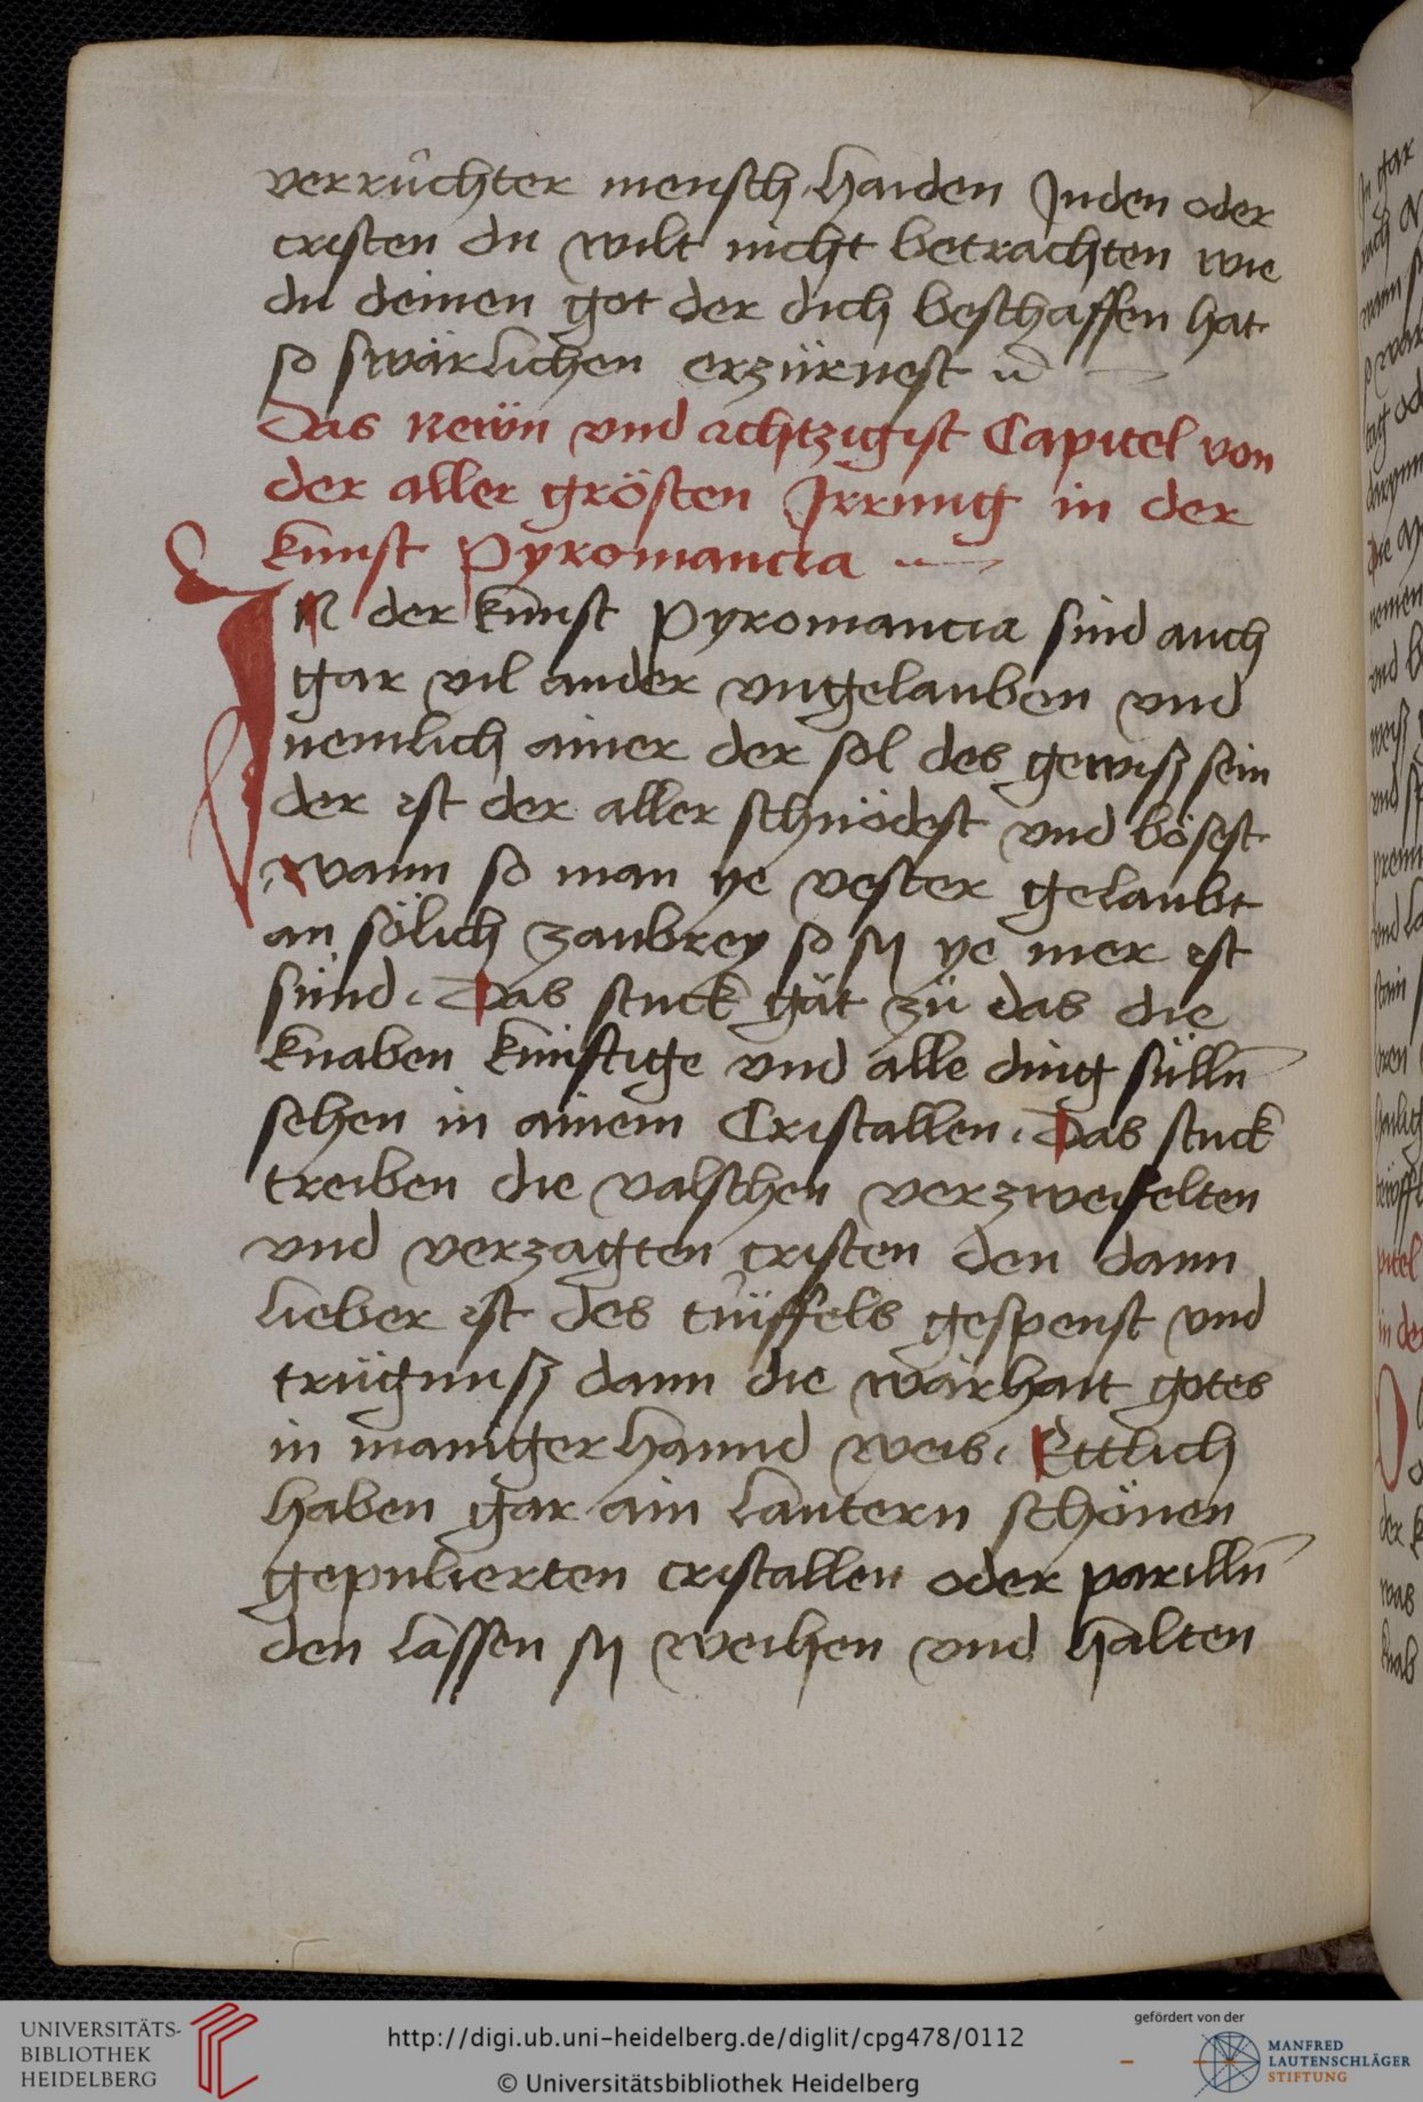 verrůchter mensch haiden Juden oder
cristen du wilt nicht betrachten wie
du deinen got der dich beschaffen hat
so swärlichen erzürnest
Das Neẅn vnd achtzigist Capitel von
der aller grösten Jrrung in der
kunst Pyromancia
IN der kunst Pyromancia sind auch
gar vil ander vngelauben vnd
nemlich ainer der sol des gewiß sein
der ist der aller schnödest vnd bösest
wann so man ye vester gelaubt
an sölich zaubrey so sy ye mer ist
sünd. Das stuck gät zü das die
knaben künftige vnd alle ding süllñ
sehen in ainem Cristallen. Das stuck
treiben die valschen verzweifelten
vnd verzagten cristen den dann
lieber ist des tüffels gespenst vnd
trügnuß dann die wärhait gotes
in maniger hannd weis. Ettlich
haben gar ain lautern schönen
gepulierten cristallen oder parillñ
den lässen sy weihen vnd halten
UNIVERSITÄTS-
BIBLIOTHEK
HEIDELBERG
http://digi.ub.uni-heidelberg.de/diglit/cpg478/0112
© Universitätsbibliothek Heidelberg
gefördert von der
MANFRED
LAUTENSCHLÄGER
STIFTUNG